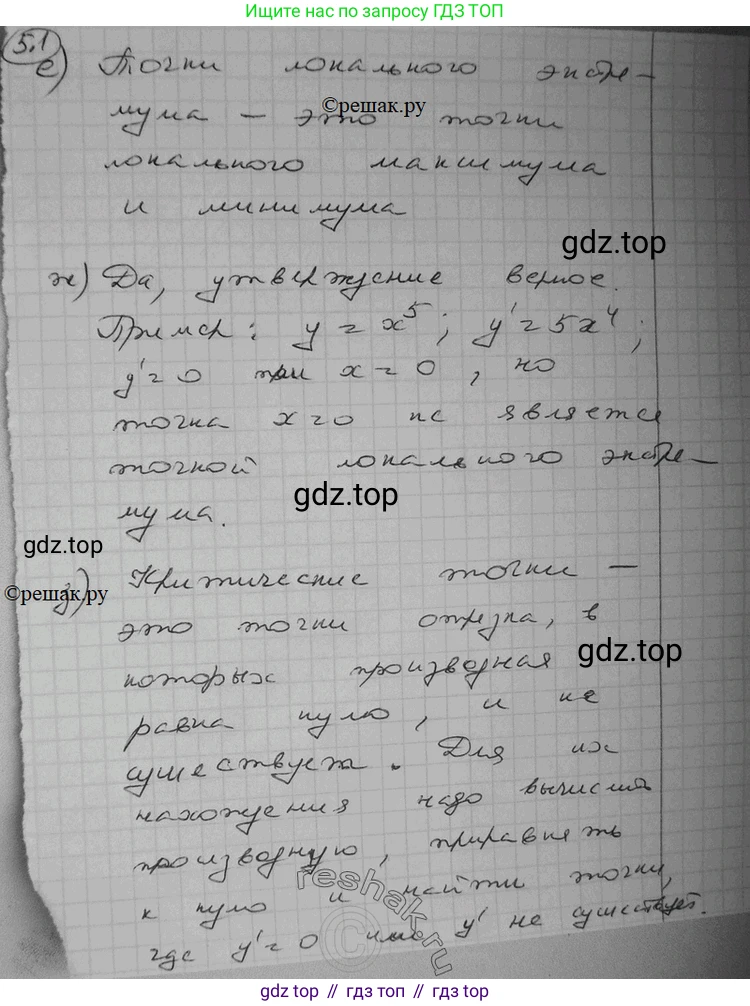 Ищите нас в поиске по запросу ГДЗ ТОП
5.1
е) Точки локального экстре-
©решак.ру
мума – это точки
локального максимума
и минимума
gdz.top
ж) Да, утверждение верное.
Пример: y = x⁵; y' = 5x⁴;
y' = 0 при x = 0, но
точка x = 0 не является
точкой локального экстре-
gdz.top
мума.
gdz.top
©решак.ру
з) Критические точки –
это точки отрезка, в
gdz.top
которых производная
равна нулю, и не
существует. Для их
нахождения надо вычислить
производную, приравнять
reshak.ru
к нулю и найти точки,
где y' = 0 или y' не существует.
gdz.top // гдз.топ // gdz.top // гдз.топ